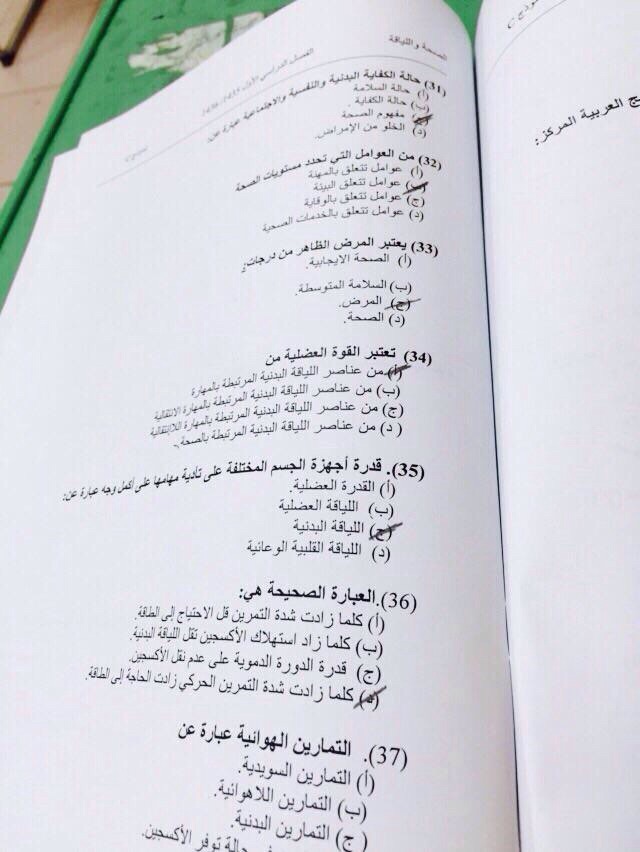 نموذج C
ج العربية المركز:
الصحة واللياقة
الفصل الدراسي الأول 1435/1436
(31) حالة الكفاية البدنية والنفسية والاجتماعية عبارة عن:
(أ) حالة السلامة
(ب) حالة الكفاية.
(ج) مفهوم الصحة
(د) الخلو من الإمراض.
(32) من العوامل التي تحدد مستويات الصحة
(أ) عوامل تتعلق بالمهنة
(ب) عوامل تتعلق البيئة
(ج) عوامل تتعلق بالوقاية
(د) عوامل تتعلق بالخدمات الصحية
(33) يعتبر المرض الظاهر من درجات:
(أ) الصحة الايجابية.
(ب) السلامة المتوسطة.
(ج) المرض.
(د) الصحة.
(34) تعتبر القوة العضلية من
(أ) من عناصر اللياقة البدنية المرتبطة بالمهارة
(ب) من عناصر اللياقة البدنية المرتبطة بالمهارة
(ج) من عناصر اللياقة البدنية المرتبطة بالمهارة الانتقالية
(د) من عناصر اللياقة البدنية المرتبطة بالصحة.
(35). قدرة أجهزة الجسم المختلفة على تأدية مهامها على أكمل وجه عبارة عن:
(أ) القدرة العضلية.
(ب) اللياقة العضلية
(ج) اللياقة البدنية
(د) اللياقة القلبية الوعائية
(36).العبارة الصحيحة هي:
(أ) كلما زادت شدة التمرين قل الاحتياج إلى الطاقة.
(ب) كلما زاد استهلاك الأكسجين تقل اللياقة البدنية.
(ج) قدرة الدورة الدموية على عدم نقل الأكسجين.
(د) كلما زادت شدة التمرين الحركي زادت الحاجة إلى الطاقة.
(37). التمارين الهوائية عبارة عن
(أ) التمارين السويدية.
(ب) التمارين اللاهوائية.
(ج) التمارين البدنية.
في حالة توفر الأكسجين.